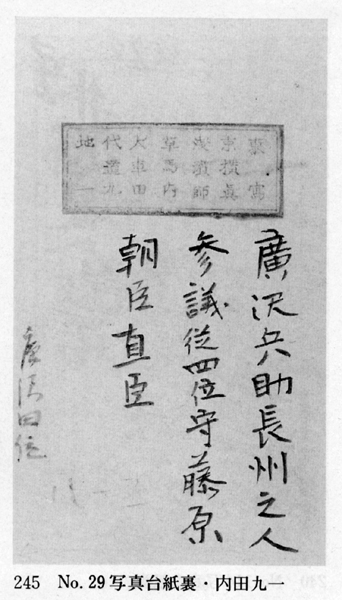 東京淺草大代地
横濱馬車道
寫眞師内田九一
廣沢兵助長州之人
参議従四位守藤原
朝臣直臣
廣沢四位
245 No.29写真台紙裏・内田九一